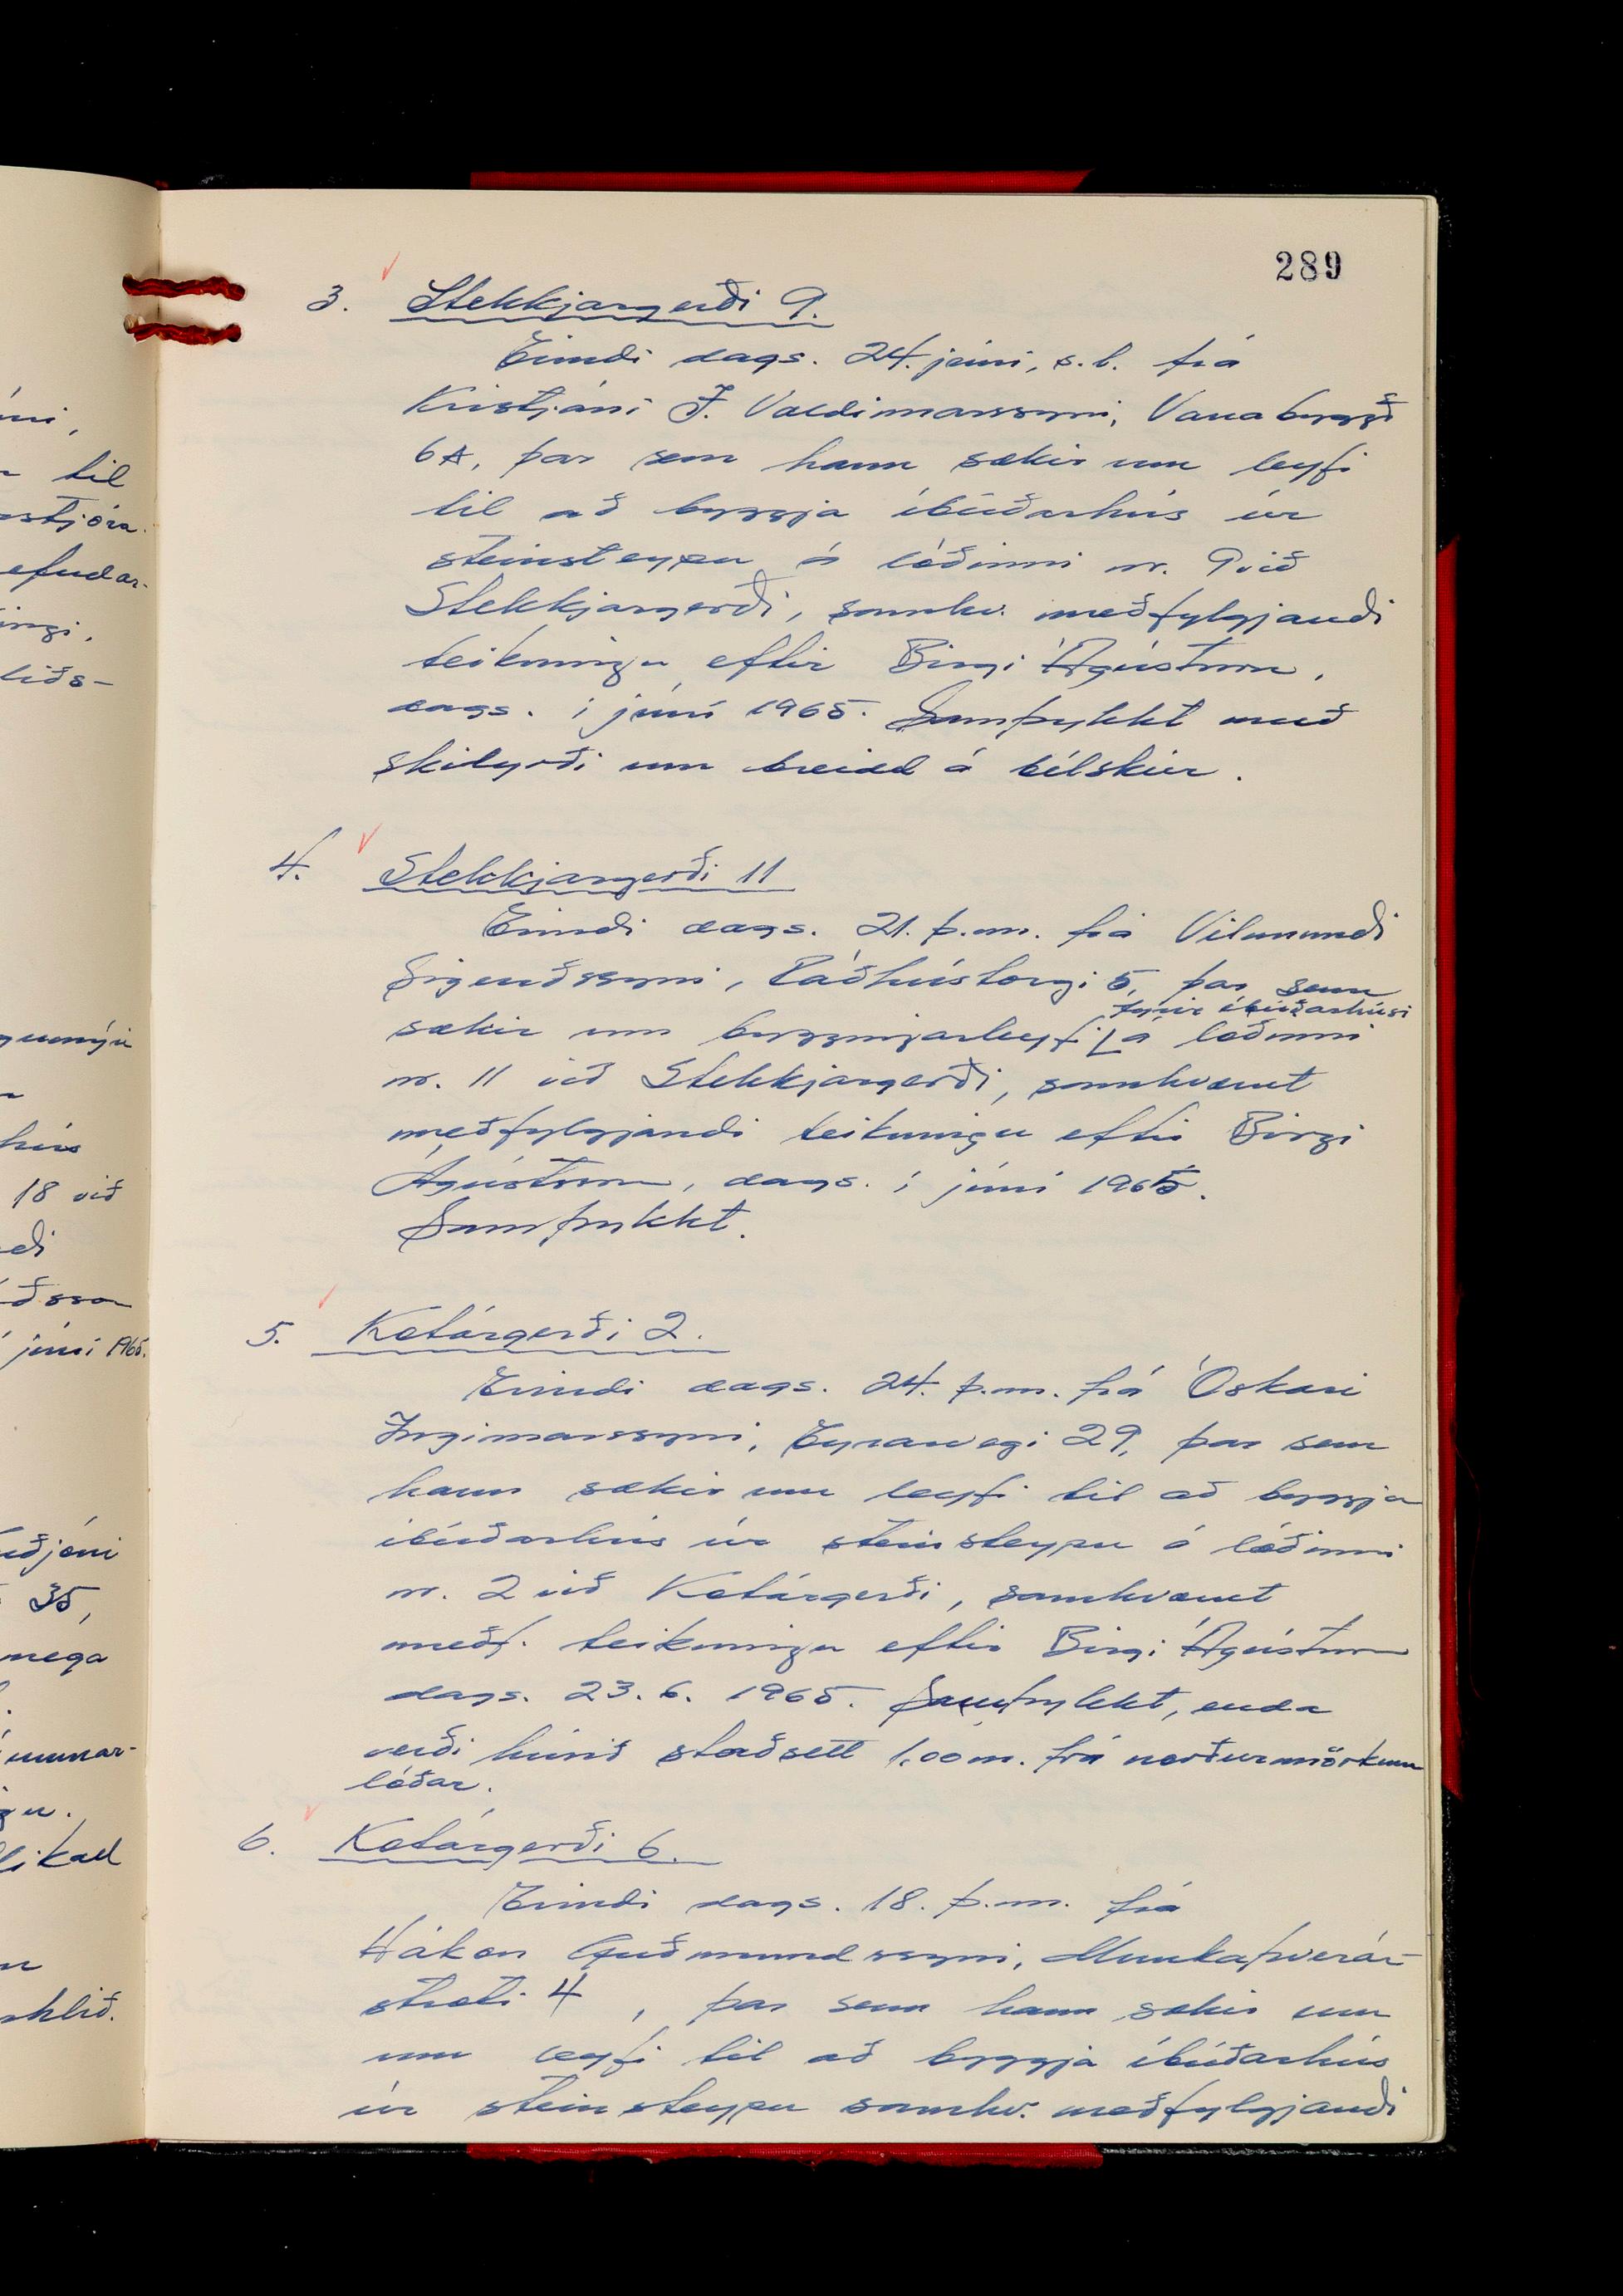 289
3. Stekkjargerði 9.
Erindi dags. 24. júní, s.l. frá
Kristjáni J. Valdimarssyni, Vanabyggð
6A, þar sem hann sækir um leyfi
til að byggja íbúðarhús úr
steinsteypu á lóðinni nr. 9 við
Stekkjargerði, samkv. meðfylgjandi
teikningu eftir Birgi Ágústsson,
dags. í júní 1965. Samþykkt með
skilyrði um breidd á bílskúr.
4. Stekkjargerði 11
Erindi dags. 21. þ.m. frá Vilmundi
Sigurðssyni, Ráðhústorgi 5, þar sem
fyrir íbúðarhúsi
sækir um byggingarleyfi á lóðinni
nr. 11 við Stekkjargerði, samkvæmt
meðfylgjandi teikningu eftir Birgi
Ágústsson, dags. í júní 1965.
Samþykkt.
5. Kotárgerði 2.
Erindi dags. 24. þ.m. frá Óskari
Ingimarssyni, Eyrarvegi 29, þar sem
hann sækir um leyfi til að byggja
íbúðarhús úr steinsteypu á lóðinni
nr. 2 við Kotárgerði, samkvæmt
meðf. teikningu eftir Birgi Ágústsson
dags. 23. 6. 1965. Samþykkt, enda
verði húsið staðsett 1,00 m. frá norðurmörkum
lóðar.
6. Kotárgerði 6.
Erindi dags. 18. þ.m. frá
Hákon Guðmundssyni, Munkaþverár-
stræti 4, þar sem hann sækir um
um leyfi til að byggja íbúðarhús
úr steinsteypu samkv. meðfylgjandi